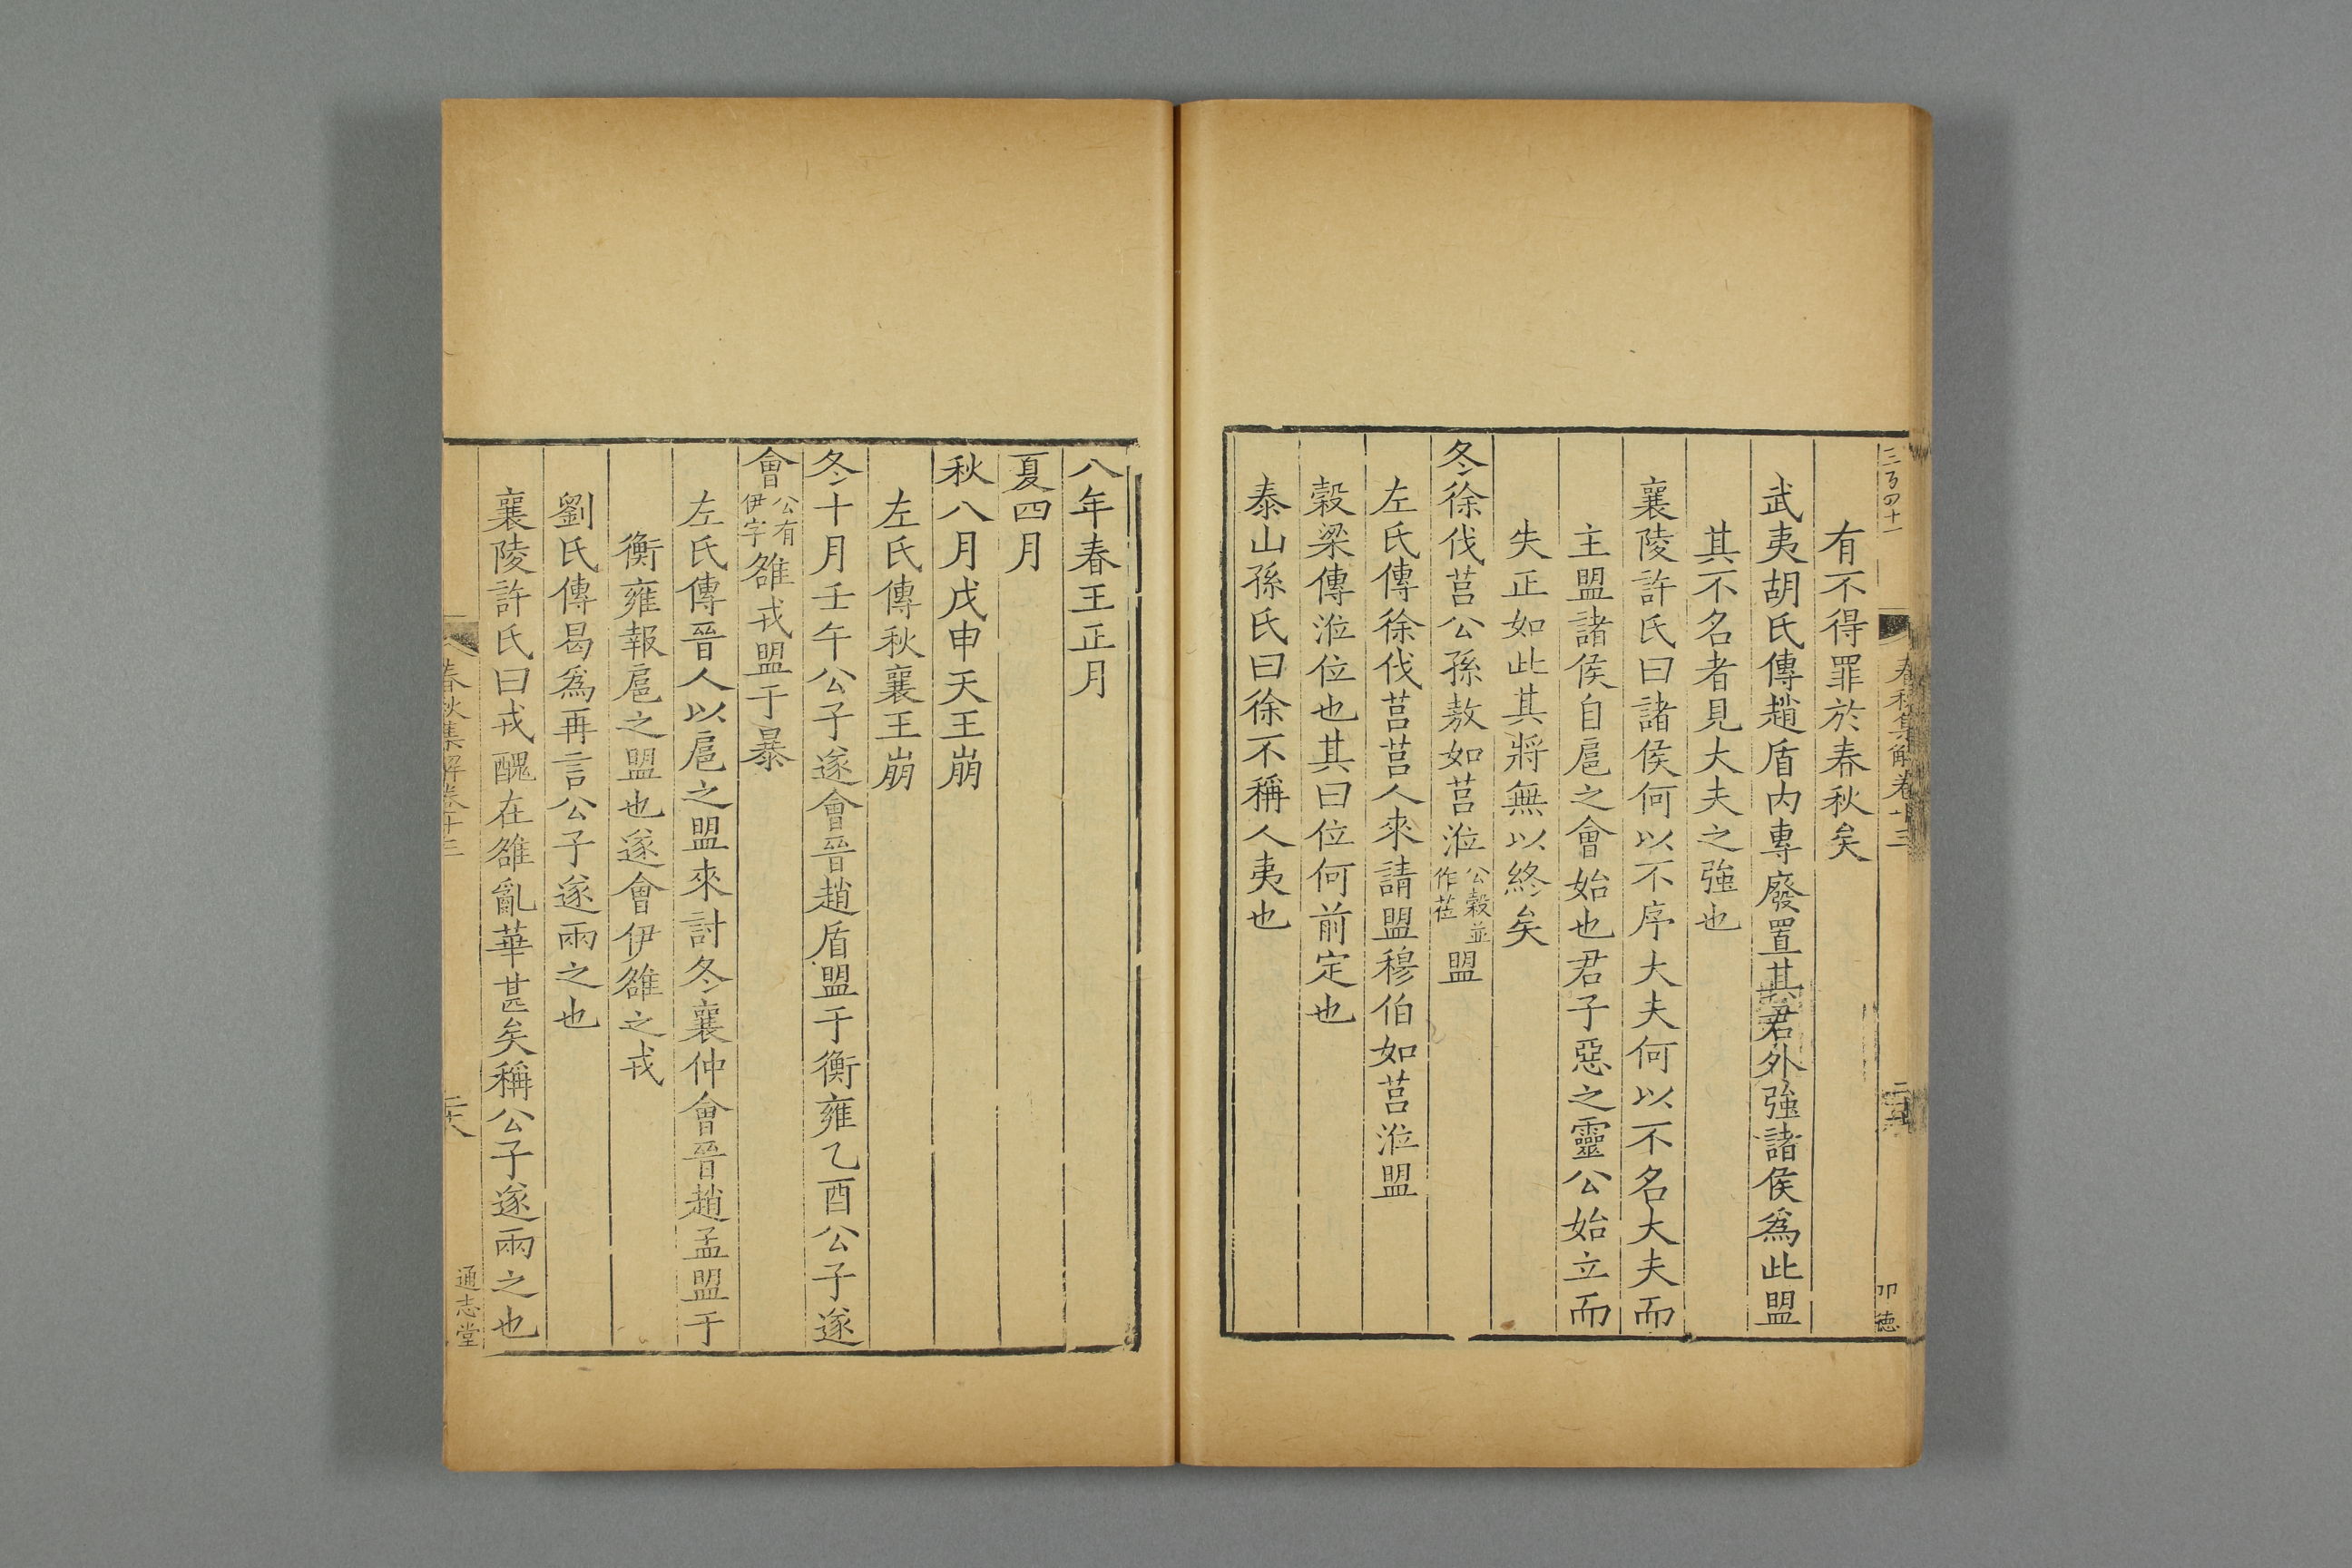 有不得罪於春秋矣
武夷胡氏傳趙盾内專廢置其君外強諸侯爲此盟
其不名者見大夫之強也
襄陵許氏曰諸侯何以不序大夫何以不名大夫而
主盟諸侯自扈之會始也君子惡之靈公始立而
失正如此其將無以終矣
冬徐伐莒公孫敖如莒涖公穀並作莅盟
左氏傳徐伐莒莒人來請盟穆伯如莒涖盟
穀梁傳涖位也其曰位何前定也
泰山孫氏曰徐不稱人夷也
八年春王正月
夏四月
秋八月戊申天王崩
左氏傳秋襄王崩
冬十月壬午公子遂會晉趙盾盟于衡雍乙酉公子遂
會公有伊字雒戎盟于暴
左氏傳晉人以扈之盟來討冬襄仲會晉趙孟盟于
衡雍報扈之盟也遂會伊雒之戎
劉氏傳曷爲再言公子遂兩之也
襄陵許氏曰戎醜在雒亂華甚矣稱公子遂兩之也
春秋集解卷十三
通志堂